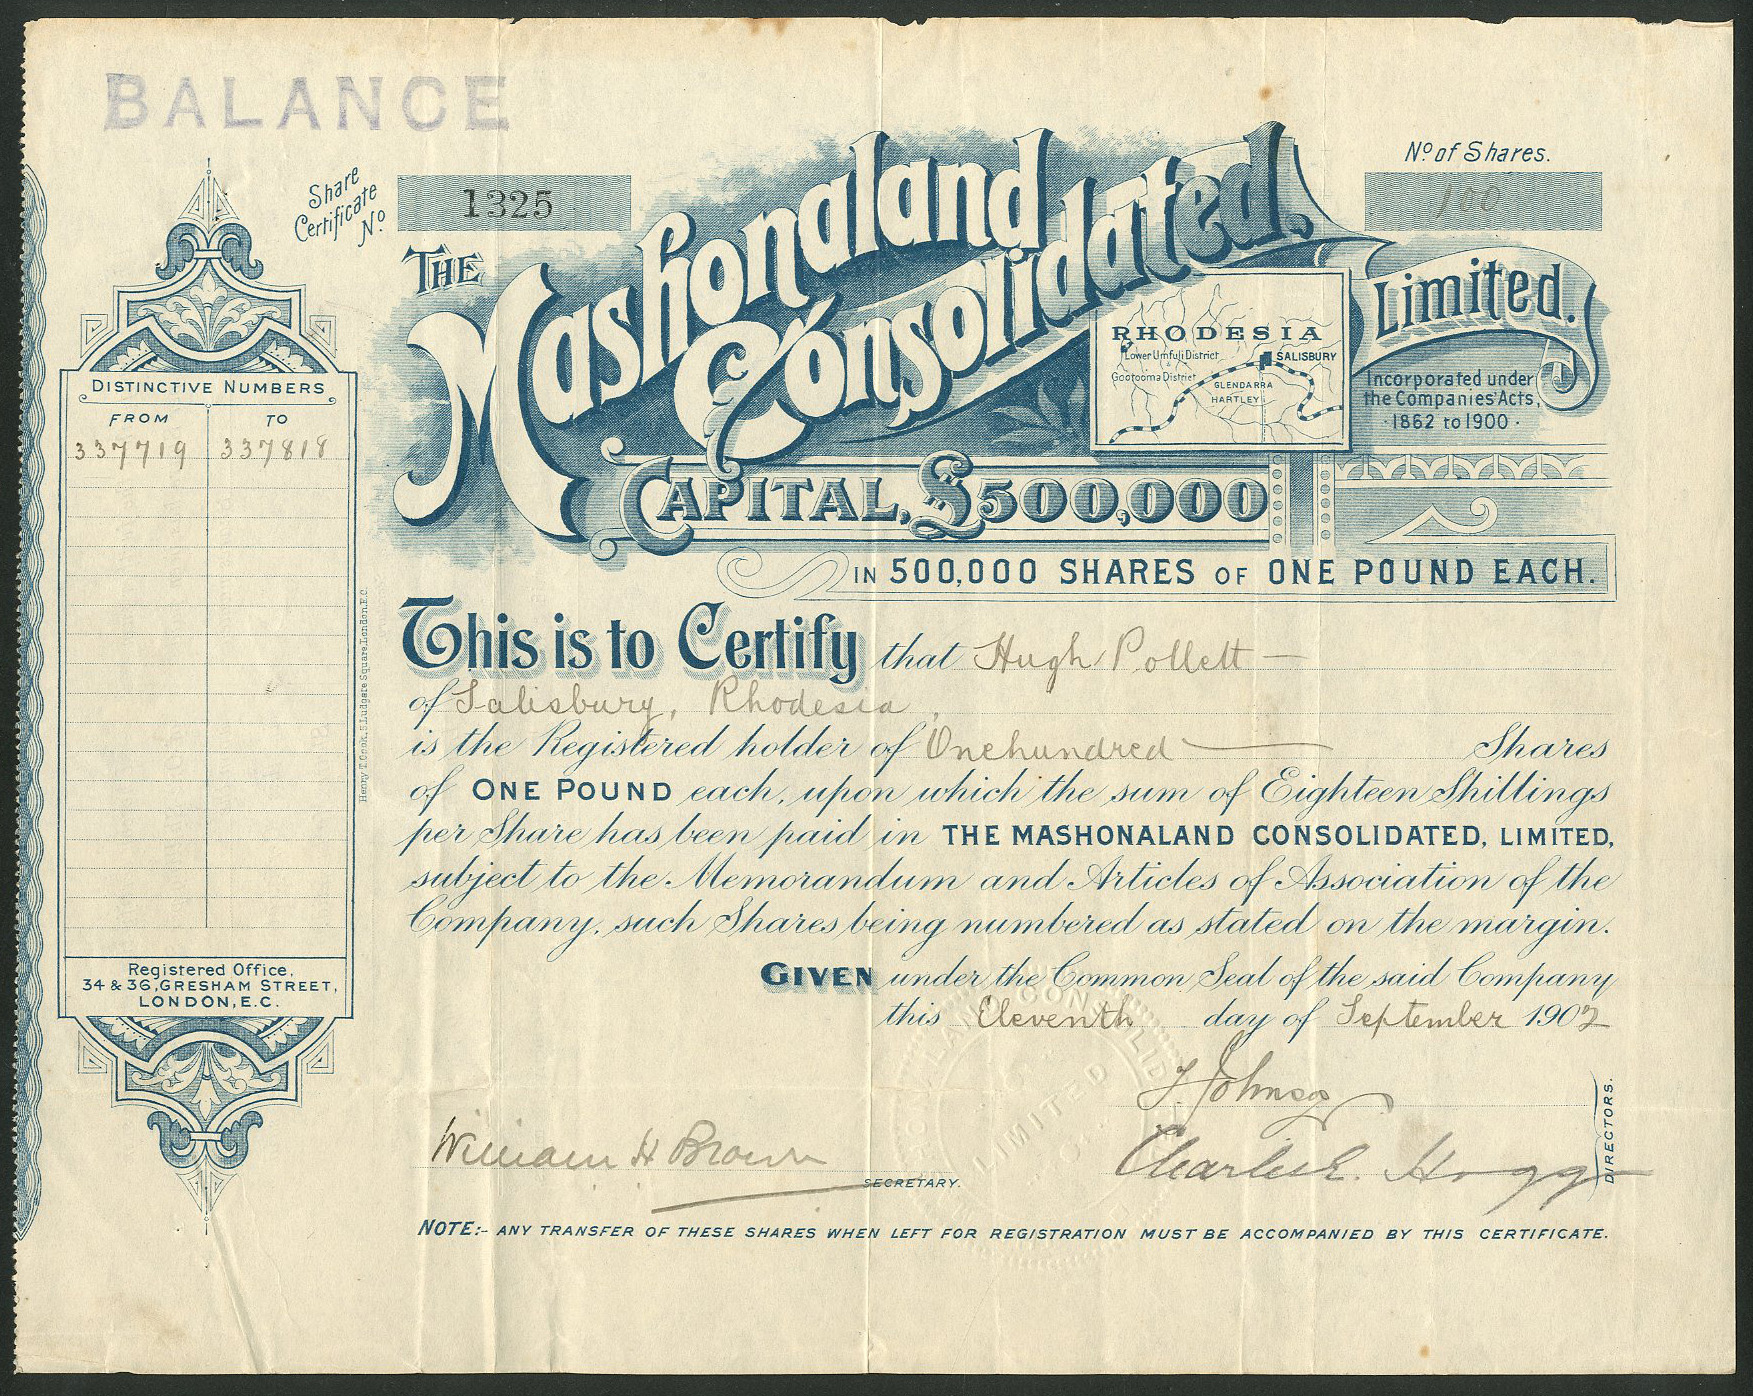 BALANCE
Share
Certificate
No.
1325
No. of Shares.
100
THE
Mashonaland
Consolidated.
Limited.
RHODESIA
Lower Umfuli District
SALISBURY
Gootooma District
GLENDARRA
HARTLEY
Incorporated under
the Companies' Acts,
· 1862 to 1900 ·
CAPITAL, £500,000
IN 500,000 SHARES OF ONE POUND EACH.
DISTINCTIVE NUMBERS
FROM TO
337719 337818
Registered Office,
34 & 36, GRESHAM STREET,
LONDON, E.C.
Henry T. Cook, 5 Ludgate Square, London, E.C.
This is to Certify that Hugh Pollett —
of Salisbury, Rhodesia,
is the Registered holder of One hundred — Shares
of ONE POUND each, upon which the sum of Eighteen Shillings
per Share has been paid in THE MASHONALAND CONSOLIDATED, LIMITED,
subject to the Memorandum and Articles of Association of the
Company, such Shares being numbered as stated on the margin.
GIVEN under the Common Seal of the said Company
this Eleventh day of September 1902
F. Johnson
Charles E. Hogg
DIRECTORS.
William H Brown
SECRETARY.
NOTE:- ANY TRANSFER OF THESE SHARES WHEN LEFT FOR REGISTRATION MUST BE ACCOMPANIED BY THIS CERTIFICATE.